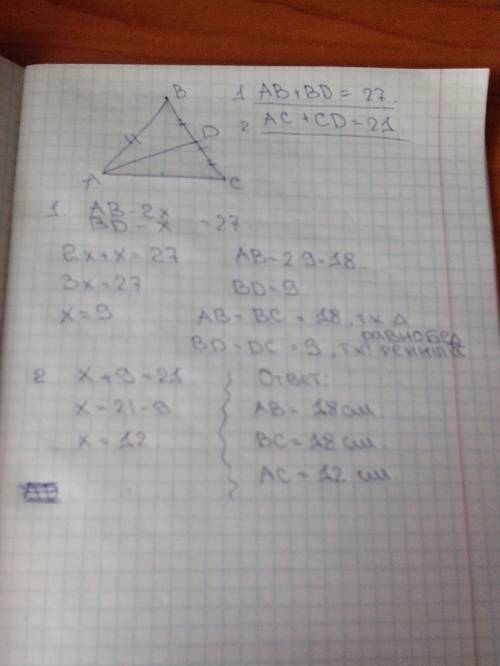 B
D
A
C
1 AB+BD = 27
2 AC + CD = 21
1. AB - 2x
BD - x = 27
2x + x = 27
3x = 27
x = 9
AB = 2 9 = 18
BD = 9
AB = BC = 18, тк Δ
равнобед
BD = DC = 9, тк ренный
2 x + 9 = 21
x = 21 - 9
x = 12
Ответ:
AB = 18 см
BC = 18 см
AC = 12 см